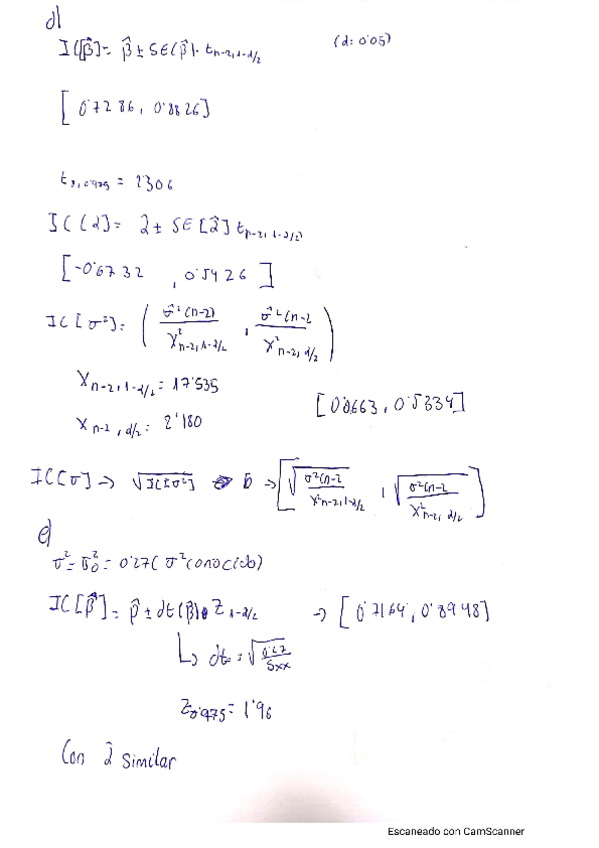 d)
IC[β̂] = β̂ ± SE(β̂)· t n-2, 1-α/2 (α: 0'05)
[0'7286, 0'8826]
t 8, 0'975 = 2'306
IC(α̂) = α̂ ± SE[α̂] t n-2, 1-α/2
[-0'6732 , 0'5426]
IC[σ²] = ( σ̂²(n-2) / χ² n-2, 1-α/2 , σ̂²(n-2 / χ² n-2, α/2 )
χ n-2, 1-α/2 = 17'535
χ n-2, α/2 : 2'180 [0'0663, 0'5334]
IC[σ] → √IC[σ²] → [ √ σ²(n-2 / χ² n-2, 1-α/2 , √ σ²(n-2 / χ² n-2, α/2 ]
e)
σ² = σ₀² = 0'27 ( σ² conocido)
IC[β̂] = β̂ ± dt(β̂) · Z 1-α/2 → [0'7164, 0'8948]
↳ dt = √ 0'27 / Sxx
Z 0'975 = 1'96
Con α̂ similar
Escaneado con CamScanner